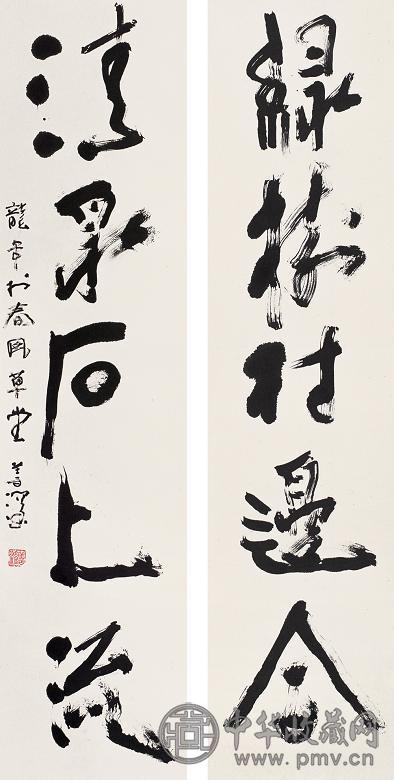 綠樹村邊合
清泉石上流
龍年於春風草堂
中华收藏网
www.pmv.cn